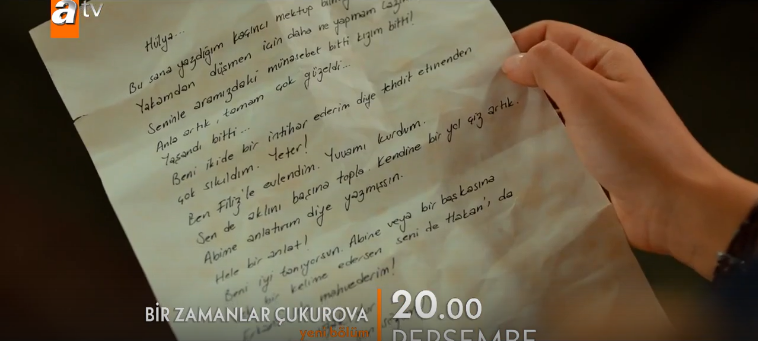 atv
Hülya...
Bu sana yazdığım kaçıncı mektup
Yakamdan düşmen için daha ne yapmam
Seninle aramızdaki münasebet bitti kızım bitti!
Anla artık, tamam çok güzeldi...
Yaşandı bitti...
Beni ikide bir intihar ederim diye tehdit etmenden
çok sıkıldım. Yeter!
Ben Filiz'le evlendim. Yuvamı kurdum.
Sen de aklını başına topla. Kendine bir yol çiz artık.
Abine anlatırım diye yazmışsın.
Hele bir anlat!
Beni iyi tanıyorsun. Abine veya bir başkasına
bir kelime edersen seni de Hakan'ı da
mahvederim!
BİR ZAMANLAR ÇUKUROVA
yeni bölüm
20.00
PERŞEMBE